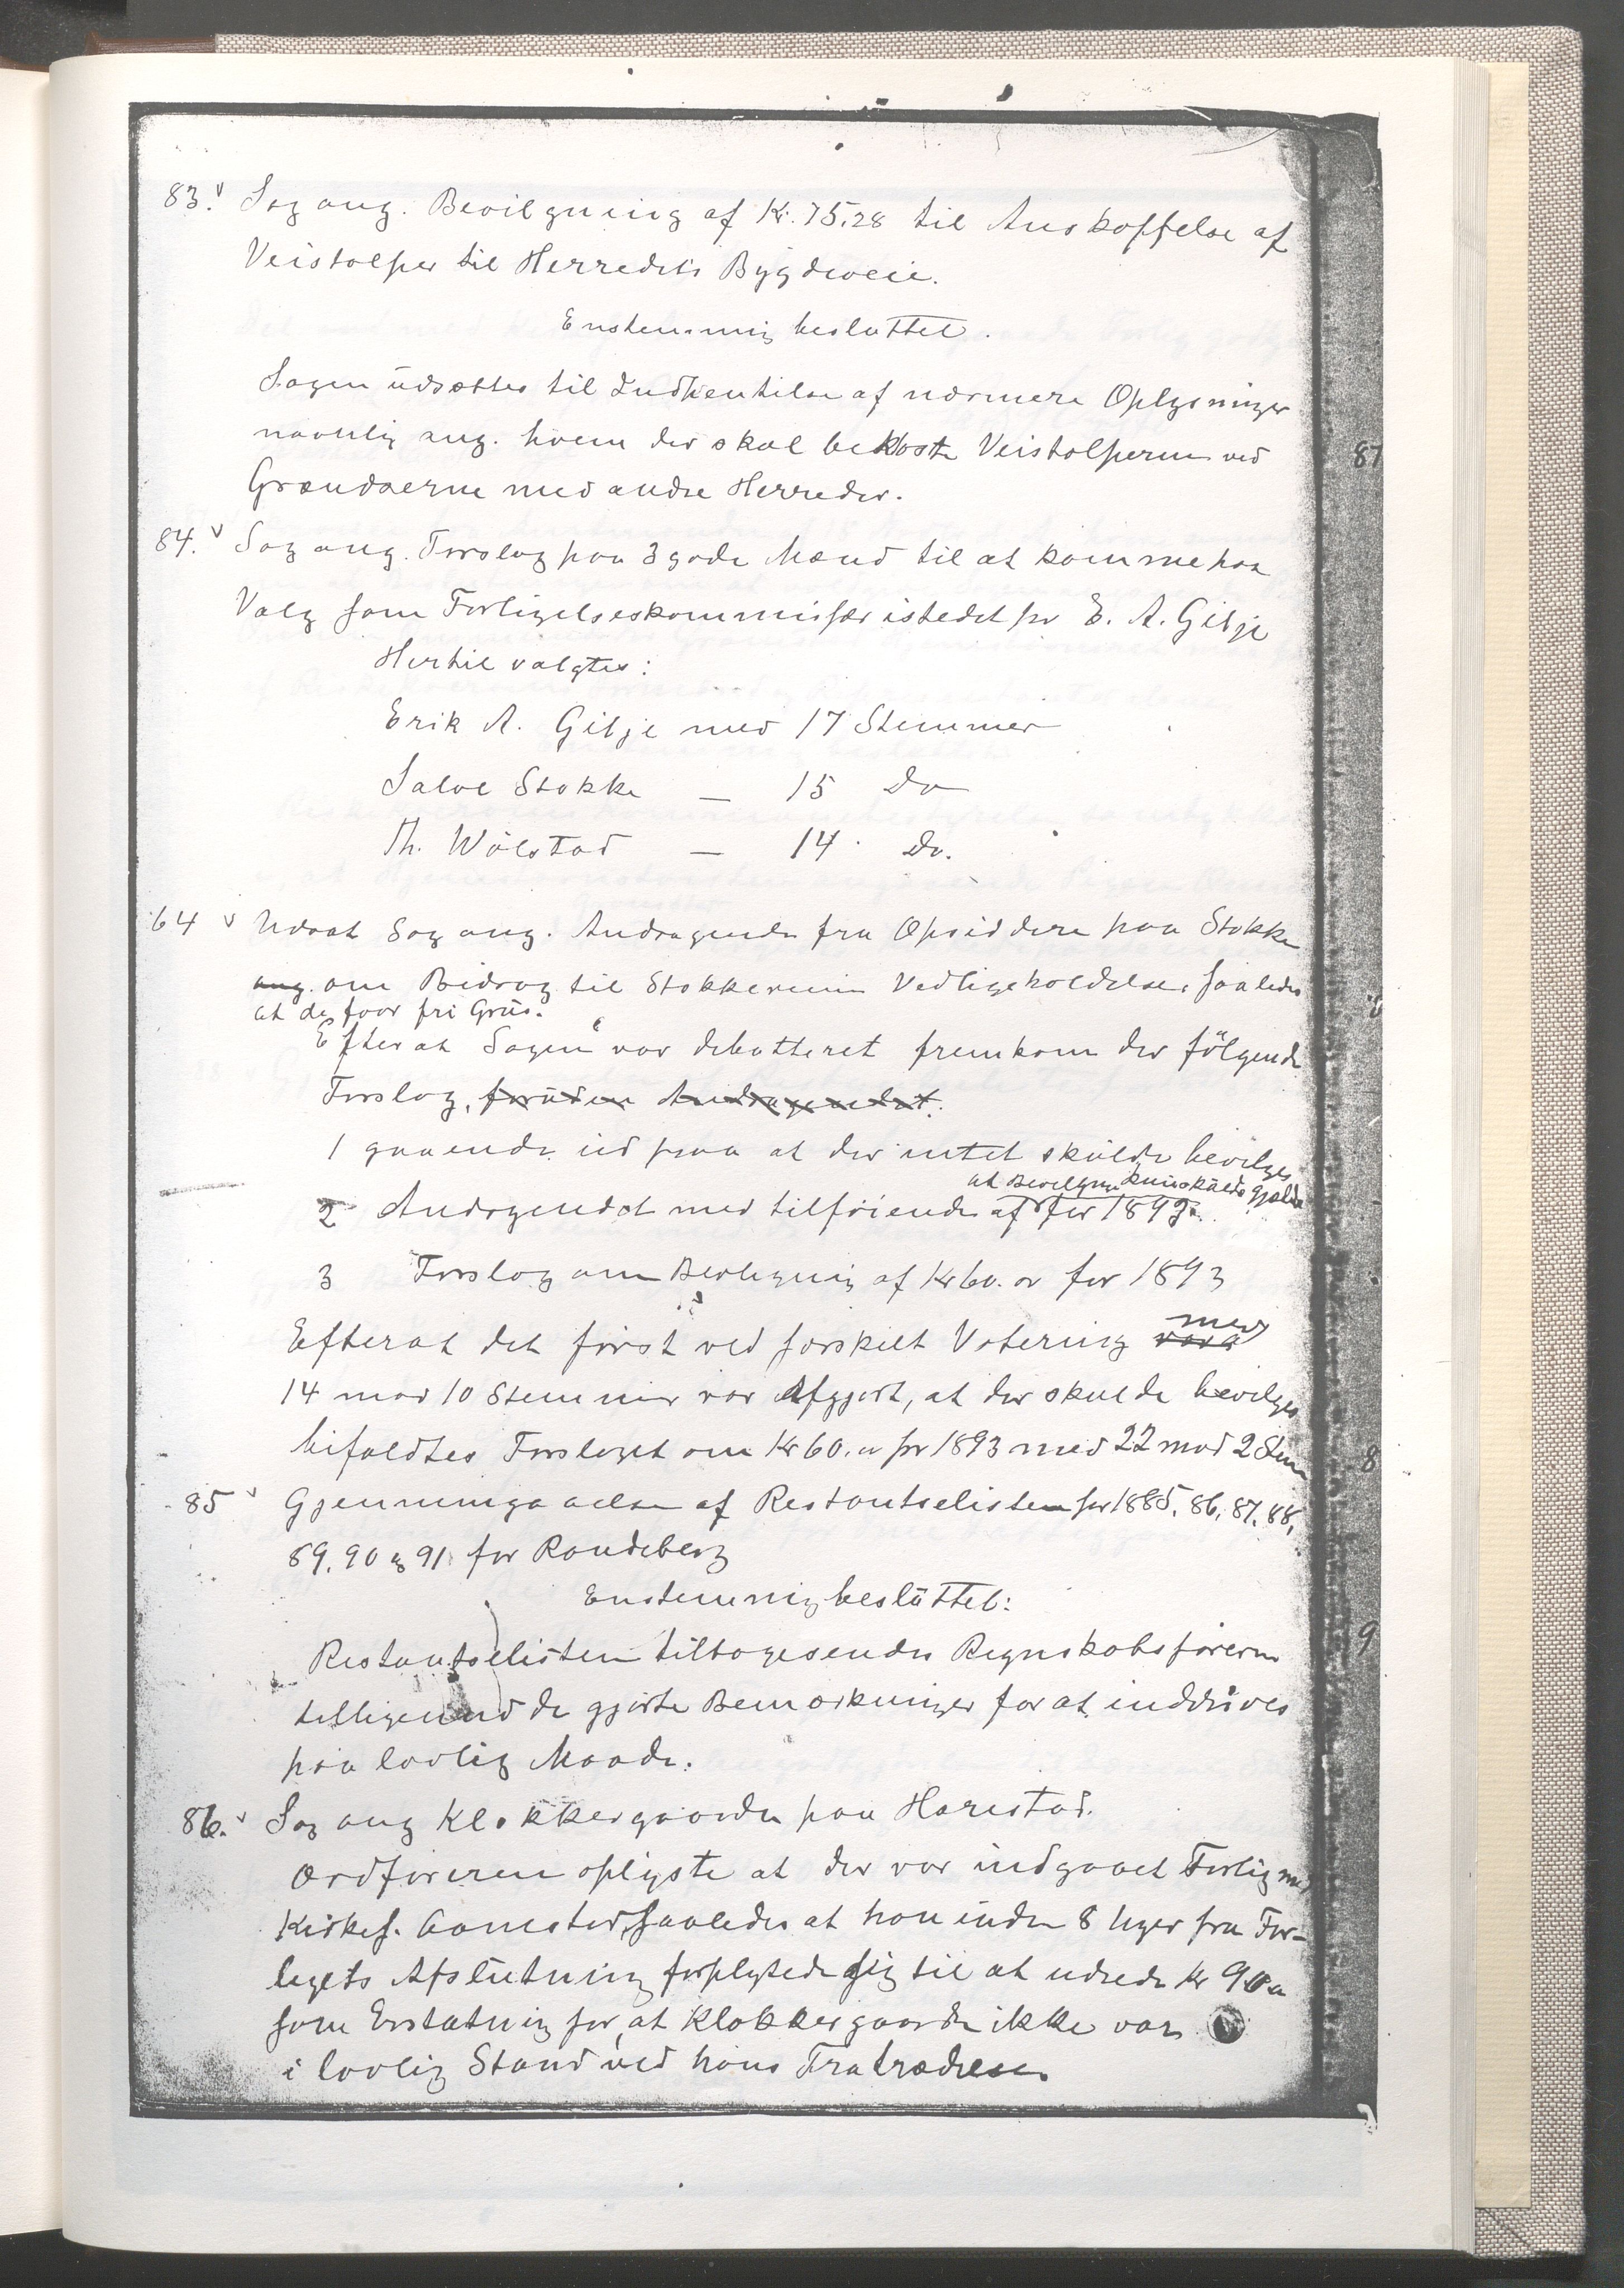 83. v Sag ang. Bevilgning af Kr. 75.28 til Anskaffelse af
Veistolper til Herredets Bygdeveie.
Enstemmig besluttet.
Sagen udsættes til Indhentelse af nærmere Oplysninger
navnlig ang. hvem der skal bekoste Veistolperne ved
Grændserne med andre Herreder.
84. v Sag ang. Forslag paa 3 gode Mænd til at komme paa
Valg som Forligelseskommissær istedet for E. A. Gilje
Hertil valgtes:
Erik A. Gilje med 17 Stemmer
Salve Stokke — 15 Do
Th. Wölstad — 14 Do.
64 v Udsat Sag ang. Andragende fra Opsiddere paa Stokke
ang. om Bidrag til Stokkeveiens Vedligeholdelse, saaledes
at de faar fri Grus.
Efterat Sagen var debatteret fremkom der følgende
Forslag, foruden Andragendet.
1 gaaende ud paa at der intet skulde bevilges
at Bevilgn. kun skulde gjælde
2 Andragendet med tilføiende af for 1893.
3 Forslag om Bevilgning af Kr 60.00 for 1893
Efterat det først ved særskilt Votering med
14 mod 10 Stemmer var Afgjort, at der skulde bevilges
bifaldtes Forslaget om Kr 60.00 for 1893 med 22 mod 2 Stem
85 v Gjennemgaaelse af Restantselisten for 1885, 86, 87, 88,
89, 90 og 91 for Randeberg
Enstemmig besluttet:
Restantselisten tilbagesendes Regnskabsføreren
tilligemed de gjorte Bemærkninger for at inddrives
paa lovlig Maade.
86. v Sag ang Klokkergaarden paa Harestad.
Ordføreren oplyste at der var indgaaet Forlig med
Kirkes. Aanestad, saaledes at han inden 8 Uger fra For-
ligets Afslutning forpligtede sig til at udrede Kr 90
som Erstatning for at Klokkergaarden ikke var
i lovlig Stand ved hans Fratrædelse.
87
8
9